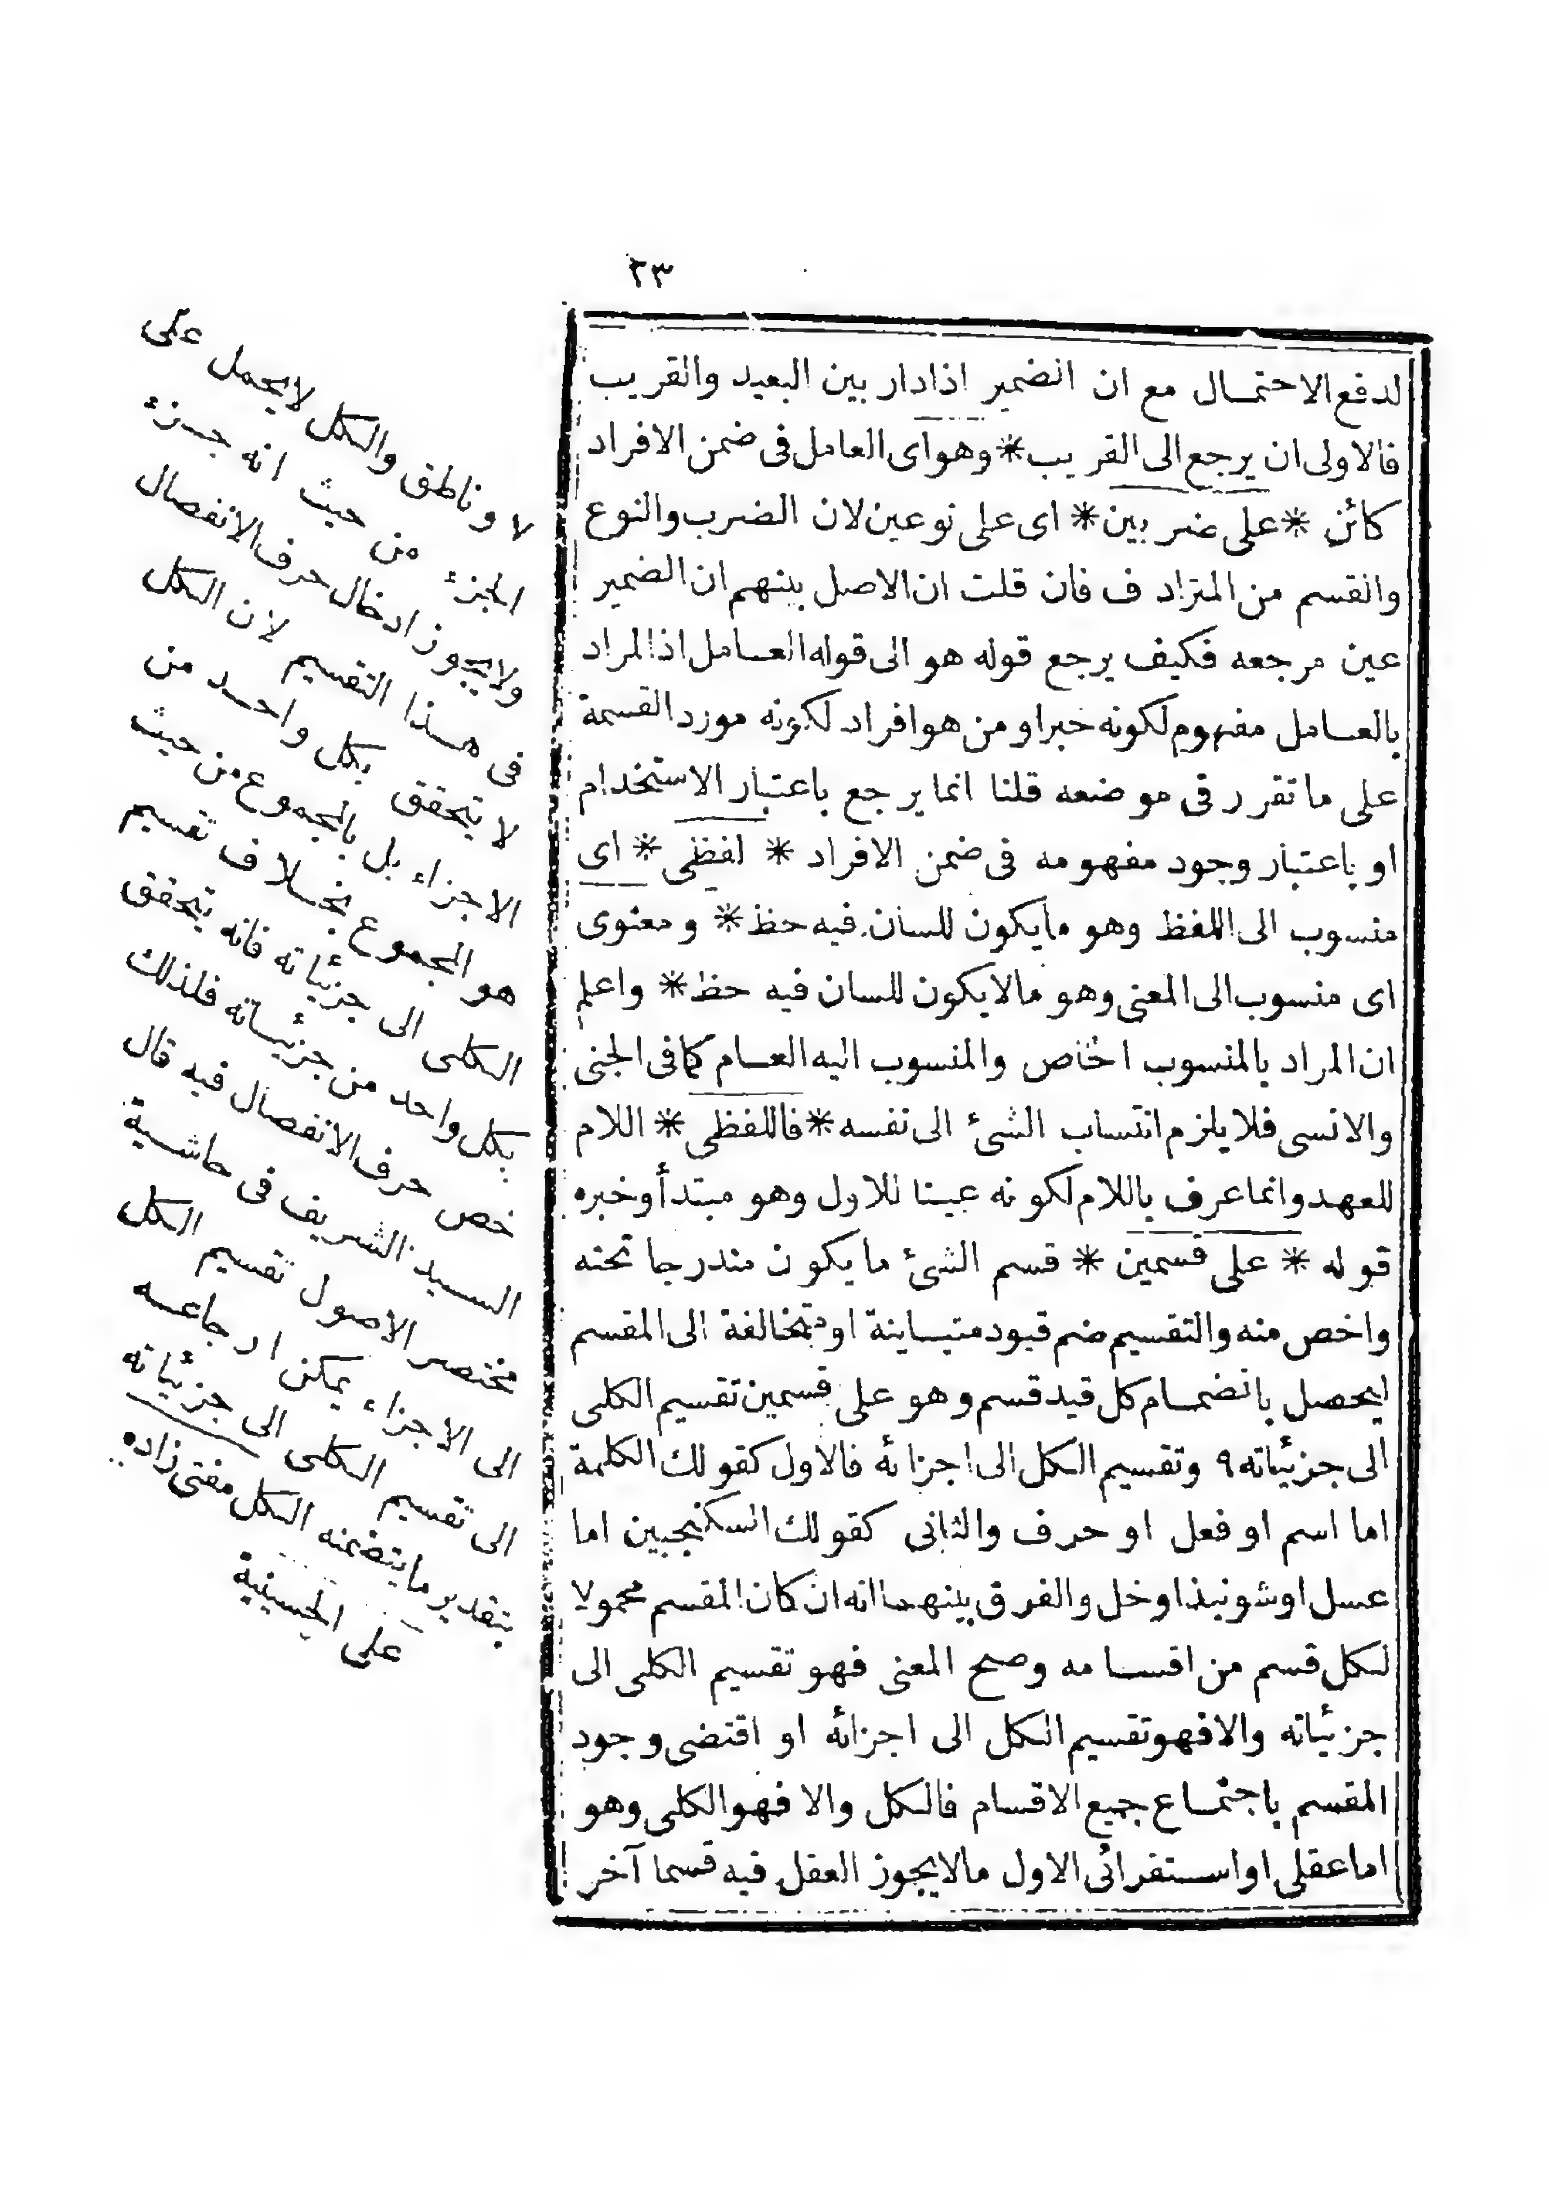 ٢٣
لدفع الاحتمال مع ان الضمير اذا دار بين البعيد والقريب
فالاولى ان يرجع الى القريب * وهو اى العامل فى ضمن الافراد
كائن * على ضربين * اى على نوعين لان الضرب والنوع
والقسم من المترادف فان قلت ان الاصل بينهم ان الضمير
عين مرجعه فكيف يرجع قوله هو الى قوله العامل اذ المراد
بالعامل مفهوم لكونه خبرا ومن هو افراد لكونه مورد القسمة
على ما تقرر فى موضعه قلنا انما يرجع باعتبار الاستخدام
او باعتبار وجود مفهومه فى ضمن الافراد * لفظى * اى
منسوب الى اللفظ وهو ما يكون للسان فيه حظ * ومعنوى
اى منسوب الى المعنى وهو مالا يكون للسان فيه حظ * واعلم
ان المراد بالمنسوب الخاص والمنسوب اليه العام كما فى الجنى
والانسى فلا يلزم انتساب الشئ الى نفسه * فاللفظى * اللام
للعهد وانما عرف باللام لكونه عينا للاول وهو مبتدأ وخبره
قوله * على قسمين * قسم الشئ ما يكون مندرجا تحته
واخص منه والتقسيم ضم قيود متباينة او متخالفة الى المقسم
ليحصل بانضمام كل قيد قسم وهو على قسمين تقسيم الكلى
الى جزئياته ٩ وتقسيم الكل الى اجزائه فالاول كقولك الكلمة
اما اسم او فعل او حرف والثانى كقولك السكنجبين اما
عسل او شونبذ او خل والفرق بينهما انه ان كان المقسم محمولا
لكل قسم من اقسامه وصح المعنى فهو تقسيم الكلى الى
جزئياته والا فهو تقسيم الكل الى اجزائه او اقتضى وجود
المقسم باجتماع جميع الاقسام فالكل والا فهو الكلى وهو
اما عقلى او استقرائى الاول مالا يجوز العقل فيه قسما آخر
لا وناطق والكل لا يحمل على
الجزء من حيث انه جزء
ولا يجوز ادخال حرف الانفصال
فى هذا التقسيم لان الكل
لا يتحقق بكل واحد من
الاجزاء بل بالمجموع من حيث
هو المجموع بخلاف تقسيم
الكلى الى جزئياته فانه يتحقق
بكل واحد من جزئياته فلذلك
خص حرف الانفصال فيه قال
السيد الشريف فى حاشية
مختصر الاصول تقسيم الكل
الى الاجزاء يمكن ارجاعه
الى تقسيم الكلى الى جزئياته
بتقدير ما يتضمنه الكل مفتى زاده
على الحسينية